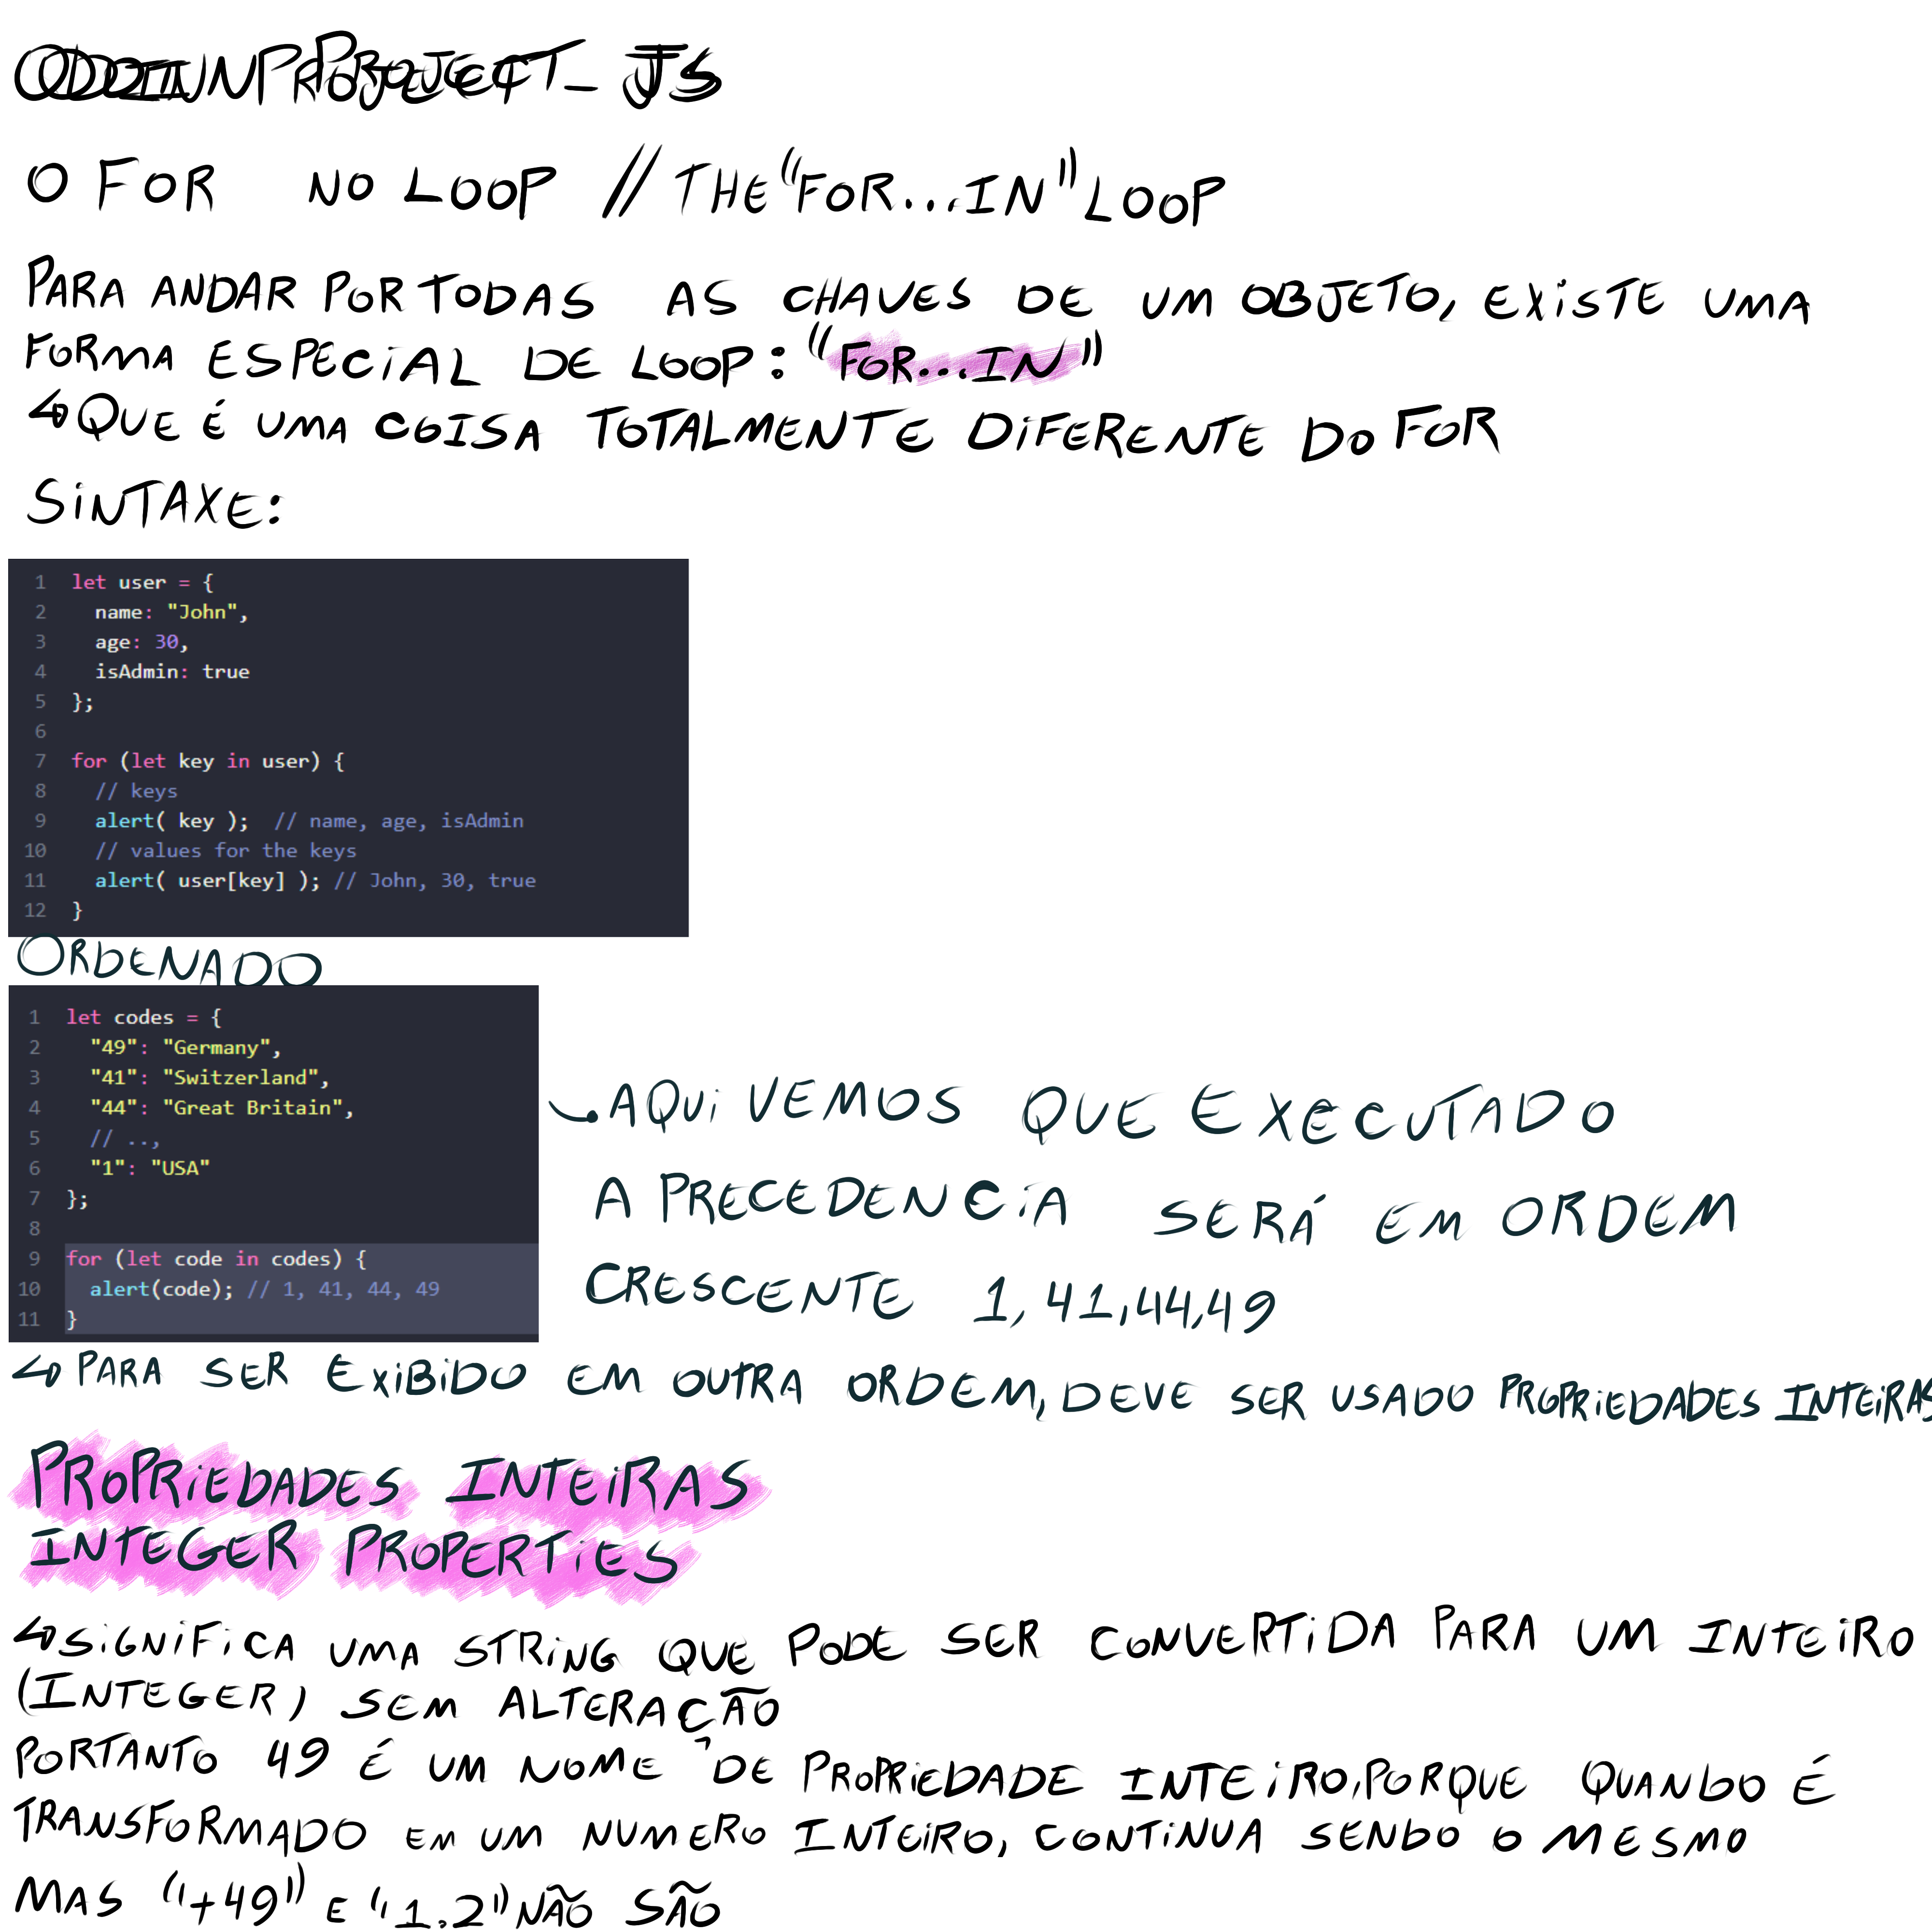 ODIN PROJECT_JS
O FOR NO LOOP // THE "FOR...IN" LOOP
PARA ANDAR POR TODAS AS CHAVES DE UM OBJETO, EXISTE UMA
FORMA ESPECIAL DE LOOP: "FOR...IN"
↳ QUE É UMA COISA TOTALMENTE DIFERENTE DO FOR
SINTAXE:
1 let user = {
2   name: "John",
3   age: 30,
4   isAdmin: true
5 };
6
7 for (let key in user) {
8   // keys
9   alert( key );  // name, age, isAdmin
10   // values for the keys
11   alert( user[key] ); // John, 30, true
12 }
ORDENADO
1 let codes = {
2   "49": "Germany",
3   "41": "Switzerland",
4   "44": "Great Britain",
5   // ..,
6   "1": "USA"
7 };
8
9 for (let code in codes) {
10   alert(code); // 1, 41, 44, 49
11 }
AQUI VEMOS QUE EXECUTADO
A PRECEDENCIA SERÁ EM ORDEM
CRESCENTE 1, 41, 44, 49
↳ PARA SER EXIBIDO EM OUTRA ORDEM, DEVE SER USADO PROPRIEDADES INTEIRAS
PROPRIEDADES INTEIRAS
INTEGER PROPERTIES
↳ SIGNIFICA UMA STRING QUE PODE SER CONVERTIDA PARA UM INTEIRO
(INTEGER) SEM ALTERAÇÃO
PORTANTO 49 É UM NOME DE PROPRIEDADE INTEIRO, PORQUE QUANDO É
TRANSFORMADO EM UM NUMERO INTEIRO, CONTINUA SENDO O MESMO
MAS "+49" E "1.2" NÃO SÃO